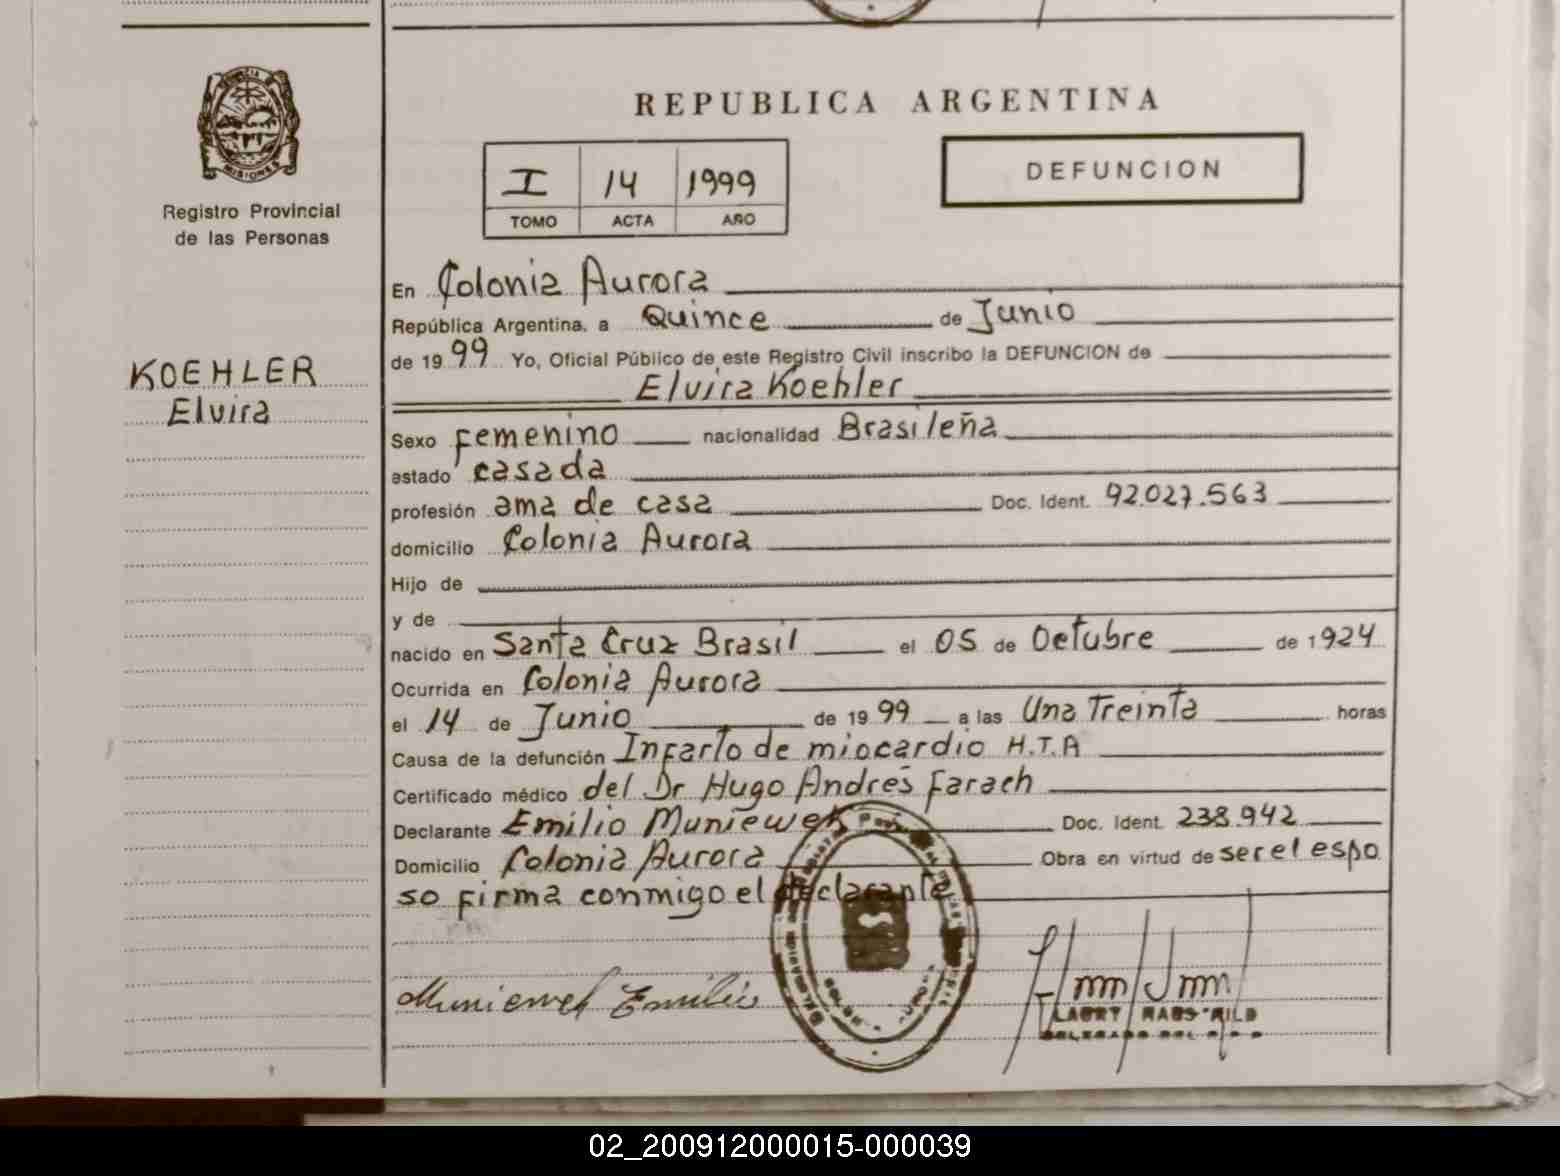 PROVINCIA DE
MISIONES
Registro Provincial
de las Personas
KOEHLER
Elvira
REPUBLICA ARGENTINA
I 14 1999
TOMO ACTA AÑO
DEFUNCION
En Colonia Aurora
República Argentina, a Quince de Junio
de 1999 Yo, Oficial Público de este Registro Civil inscribo la DEFUNCION de
Elvira Koehler
Sexo femenino nacionalidad Brasileña
estado casada
profesión ama de casa Doc. Ident. 92.027.563
domicilio Colonia Aurora
Hijo de
y de
nacido en Santa Cruz Brasil el 05 de Octubre de 1924
Ocurrida en Colonia Aurora
el 14 de Junio de 1999 a las Una Treinta horas
Causa de la defunción Infarto de miocardio H.T.A
Certificado médico del Dr Hugo Andrés Farach
Declarante Emilio Muniewek Doc. Ident. 238.942
Domicilio Colonia Aurora Obra en virtud de ser el espo
so firma conmigo el declarante
Muniewek Emilio
02_200912000015-000039